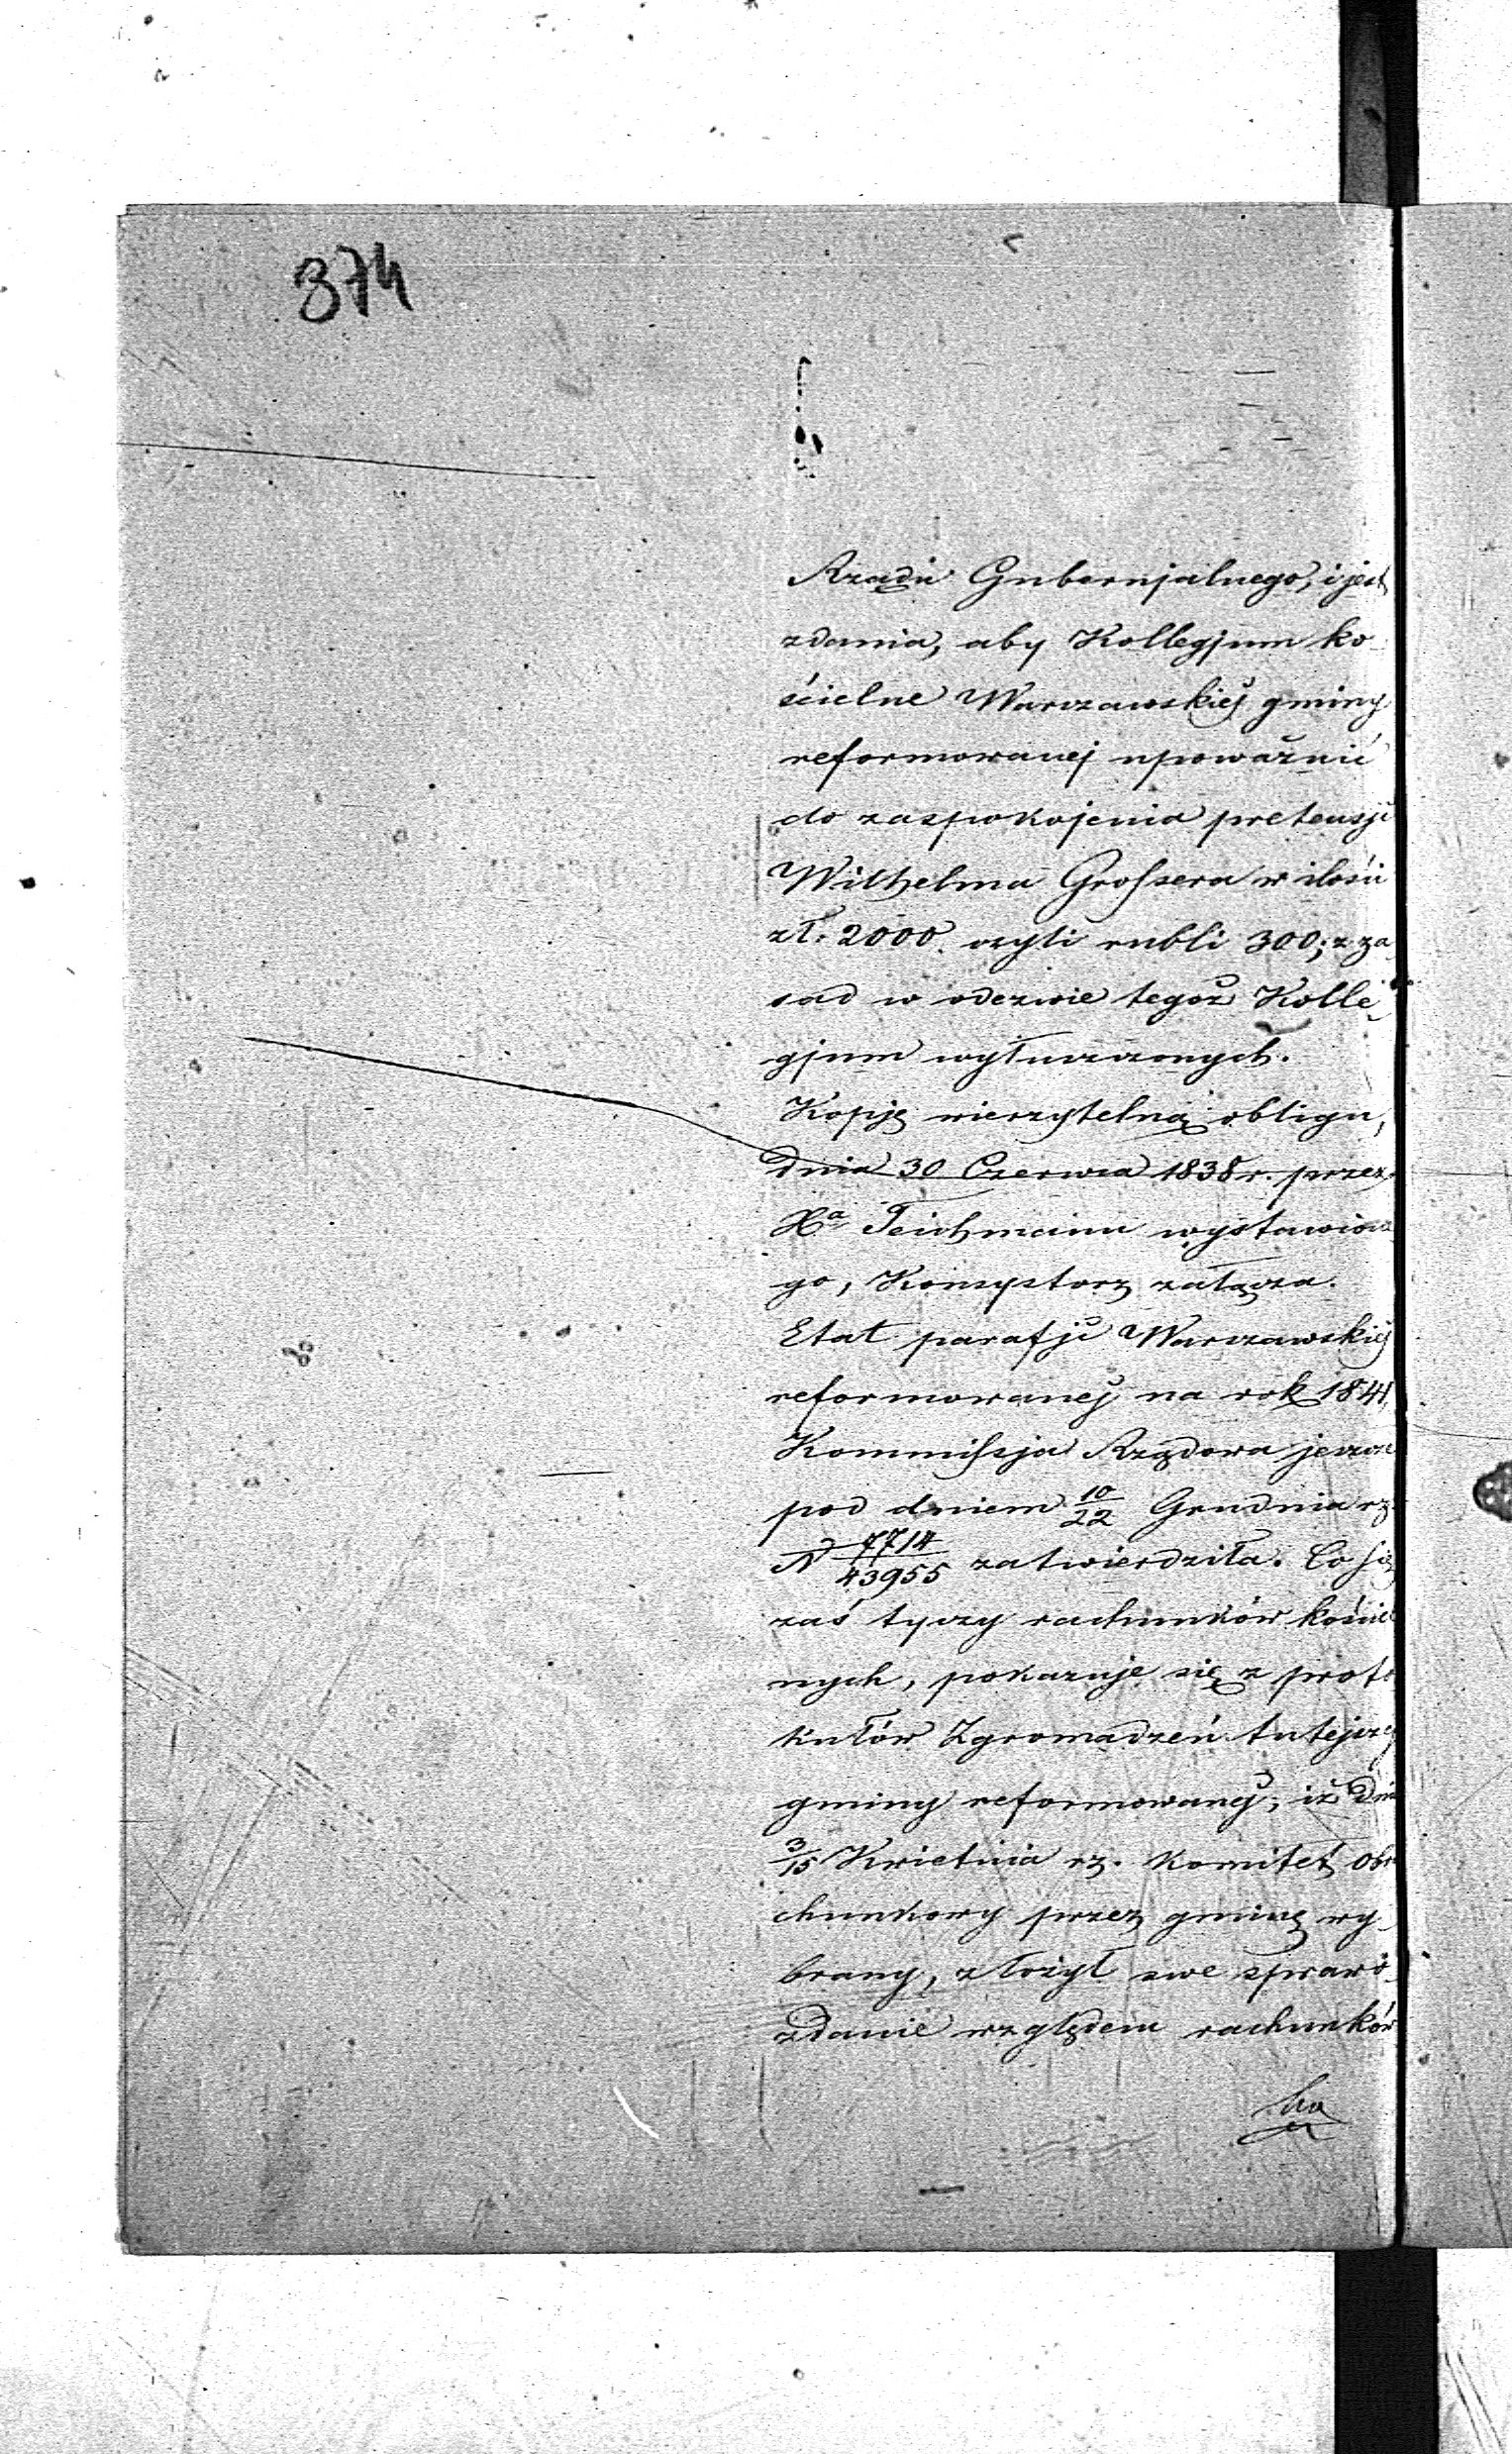 374
Rządu Gubernjalnego, i jest
zdania, aby Kollegjum ko-
ścielne Warszawskiéj gminy
reformowanej upoważnić
do zaspokojenia pretensji
Wilhelma Grossera w ilości
zł. 2000. czyli rubli 300; z za
sad w odezwie tegoż Kolle-
gjum wyłuszczonych.
Kopję wierzytelną obligu,
dnia 30 Czerwca 1838 r. przez
Xa Teichmann wystawione
go, Konsystorz załącza.
Etat parafji Warszawskiéj
reformowanéj na rok 1841
Kommissja Rządowa jeszcze
pod dniem 10/22 Grudnia rz.
N 7714/43955 zatwierdziła. Co się
zaś tyczy rachunków kościel
nych, pokazuje się z proto
kułów Zgromadzeń tutejszej
gminy reformowanéj, iż dnia
3/15 Kwietnia rz. Komitet obra
chunkowy przez gminę wy-
brany, złożył swe sprawo-
zdanie względem rachunków